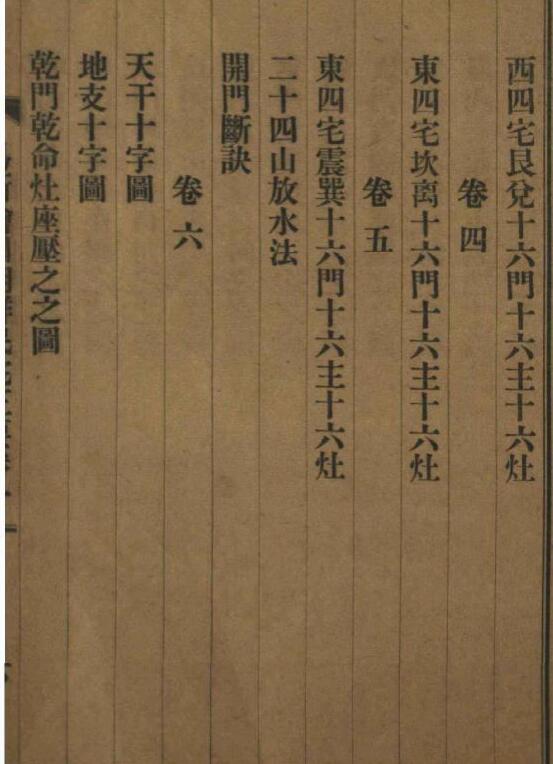 西四宅艮兌十六門十六主十六灶
卷四
東四宅坎离十六門十六主十六灶
卷五
東四宅震巽十六門十六主十六灶
二十四山放水法
開門斷訣
卷六
天干十字圖
地支十字圖
乾門乾命灶座壓之之圖